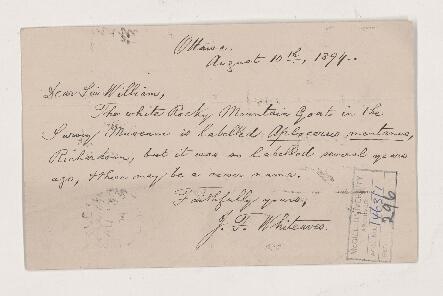 Ottawa.
August 10th, 1894.
Dear Sir William,
The white Rocky Mountain Goats in the
Survey Museum is labelled Aplocerus montanus,
Richardson, but it was so labelled several years
ago, & there may be a newer name.
Faithfully yours,
J. F. Whiteaves.
McGILL UNIVERSITY
ACC. NO. 1463/
REF. 296